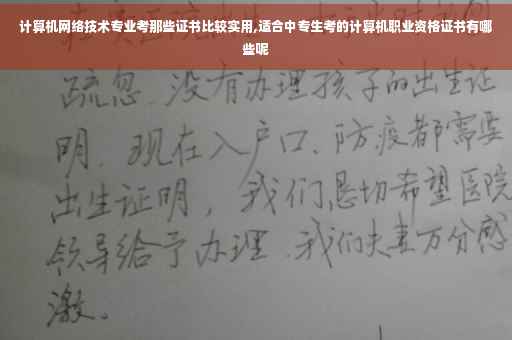 计算机网络技术专业考那些证书比较实用,适合中专生考的计算机职业资格证书有哪
些呢
疏忽.没有办理孩子的出生证
明.现在入户口、防疫都需要
出生证明，我们恳切希望医院
领导给予办理.我们夫妻万分感
激。